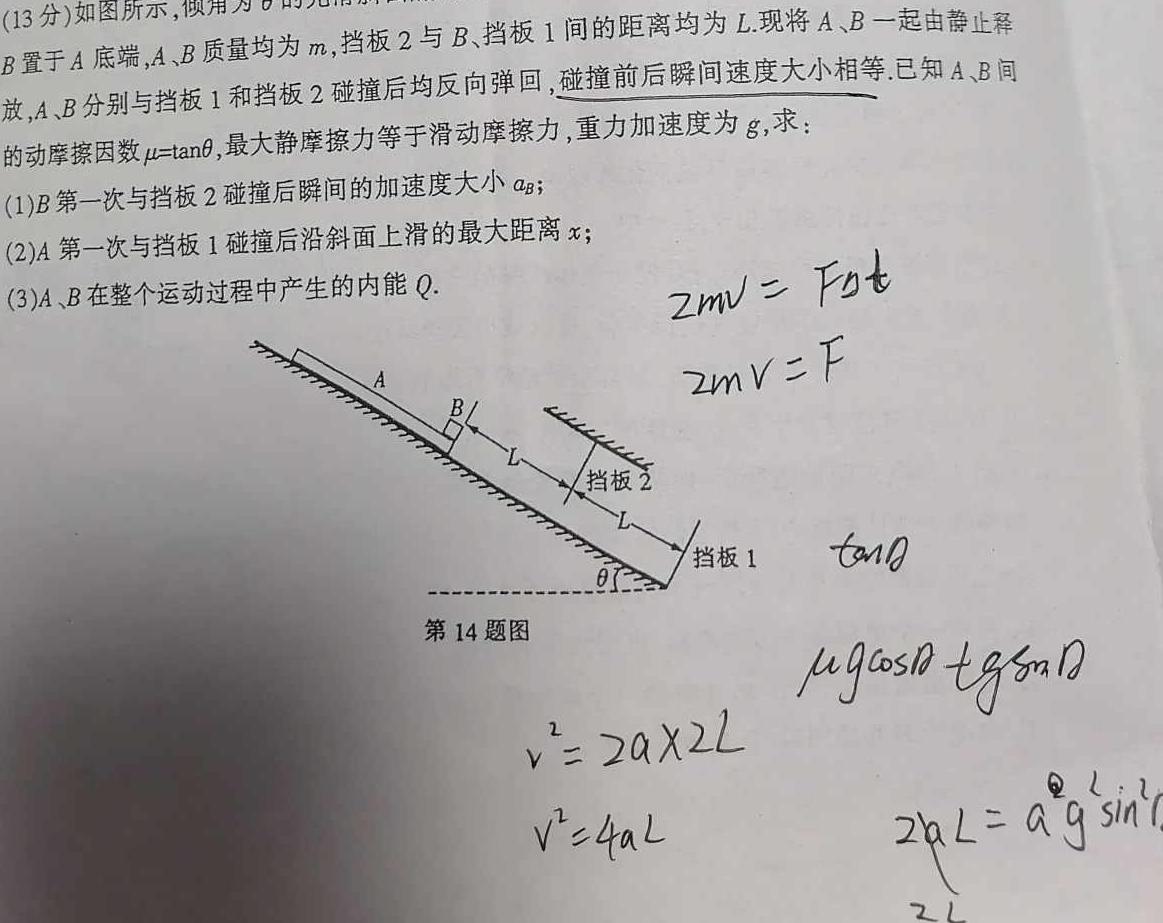 (13分)如图所示,倾角为θ的光滑斜
B置于A底端,A、B质量均为m,挡板2与B、挡板1间的距离均为L.现将A、B一起由静止释
放,A、B分别与挡板1和挡板2碰撞后均反向弹回,碰撞前后瞬间速度大小相等.已知A、B间
的动摩擦因数μ=tanθ,最大静摩擦力等于滑动摩擦力,重力加速度为g,求:
(1)B第一次与挡板2碰撞后瞬间的加速度大小aB;
(2)A第一次与挡板1碰撞后沿斜面上滑的最大距离x;
(3)A、B在整个运动过程中产生的内能Q.
2mv = FΔt
2mv = F
A
B
L
挡板2
L
挡板1
θ
第14题图
tanθ
μgcosθ+gsinθ
v²=2a×2L
v²=4aL
2aL=
g²sin²
2L